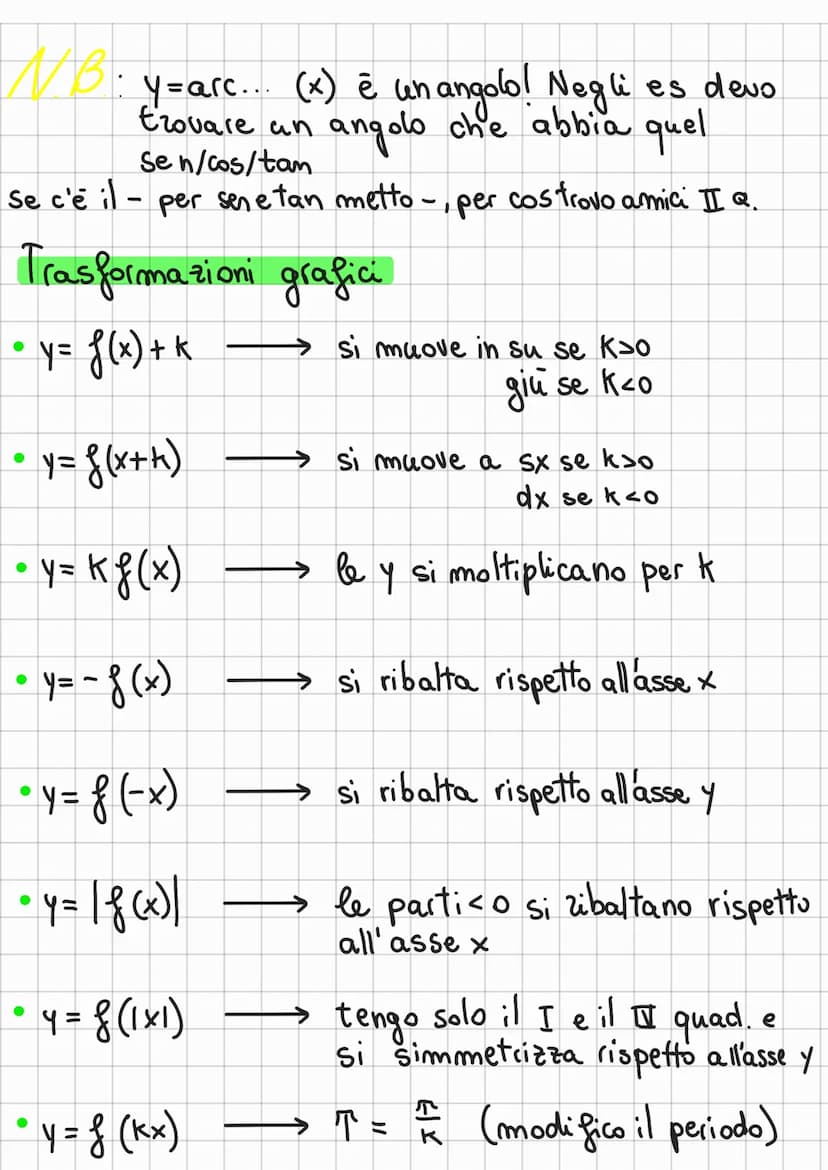 N.B: y=arc... (x) è un angolo! Negli es devo
trovare un angolo che abbia quel
sen/cos/tan
Se c'è il - per sen e tan metto -, per cos trovo amici II Q.
Trasformazioni grafici
• y= f(x)+k ⟶ si muove in su se k>0
giù se k<0
• y= f(x+k) ⟶ si muove a sx se k>0
dx se k<0
• y= k f(x) ⟶ le y si moltiplicano per k
• y= - f(x) ⟶ si ribalta rispetto all'asse x
• y= f(-x) ⟶ si ribalta rispetto all'asse y
• y= |f(x)| ⟶ le parti <0 si ribaltano rispetto
all'asse x
• y= f(|x|) ⟶ tengo solo il I e il IV quad. e
si simmetrizza rispetto all'asse y
• y= f(kx) ⟶ T = T/K (modifico il periodo)